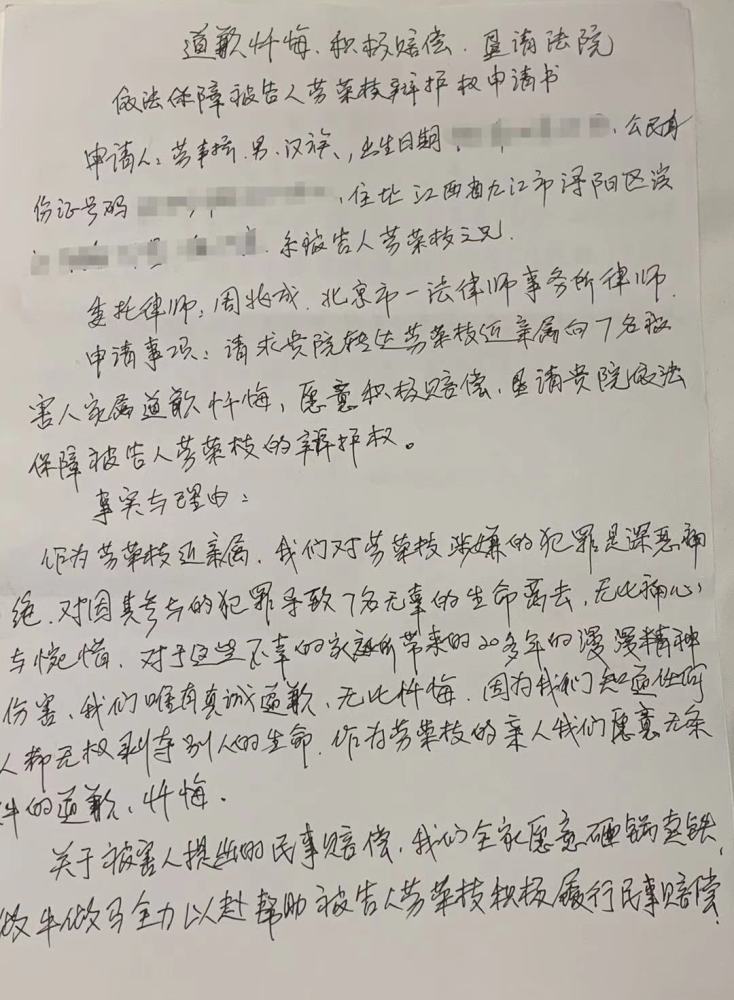 道歉忏悔、积极赔偿、恳请法院
依法保障被告人劳荣枝辩护权申请书
申请人：劳声桥、男、汉族、出生日期，公民身
份证号码，住址江西省九江市浔阳区滨
系被告人劳荣枝之兄．
委托律师：周兆成、北京市一法律师事务所律师．
申请事项：请求贵院转达劳荣枝近亲属向7名被
害人家属道歉忏悔，愿意积极赔偿，恳请贵院依法
保障被告人劳荣枝的辩护权。
事实与理由：
作为劳荣枝近亲属，我们对劳荣枝涉嫌的犯罪是深恶痛
绝，对因其参与的犯罪导致7名无辜的生命离去，无比痛心
与惋惜，对于这些不幸的家庭所带来的20多年的漫漫精神
伤害，我们唯有真诚道歉、无比忏悔．因为我们知道任何
人都无权剥夺别人的生命．作为劳荣枝的亲人我们愿意无条
件的道歉、忏悔．
关于被害人提出的民事赔偿，我们全家愿意砸锅卖铁，
做牛做马全力以赴帮助被告人劳荣枝积极履行民事赔偿，